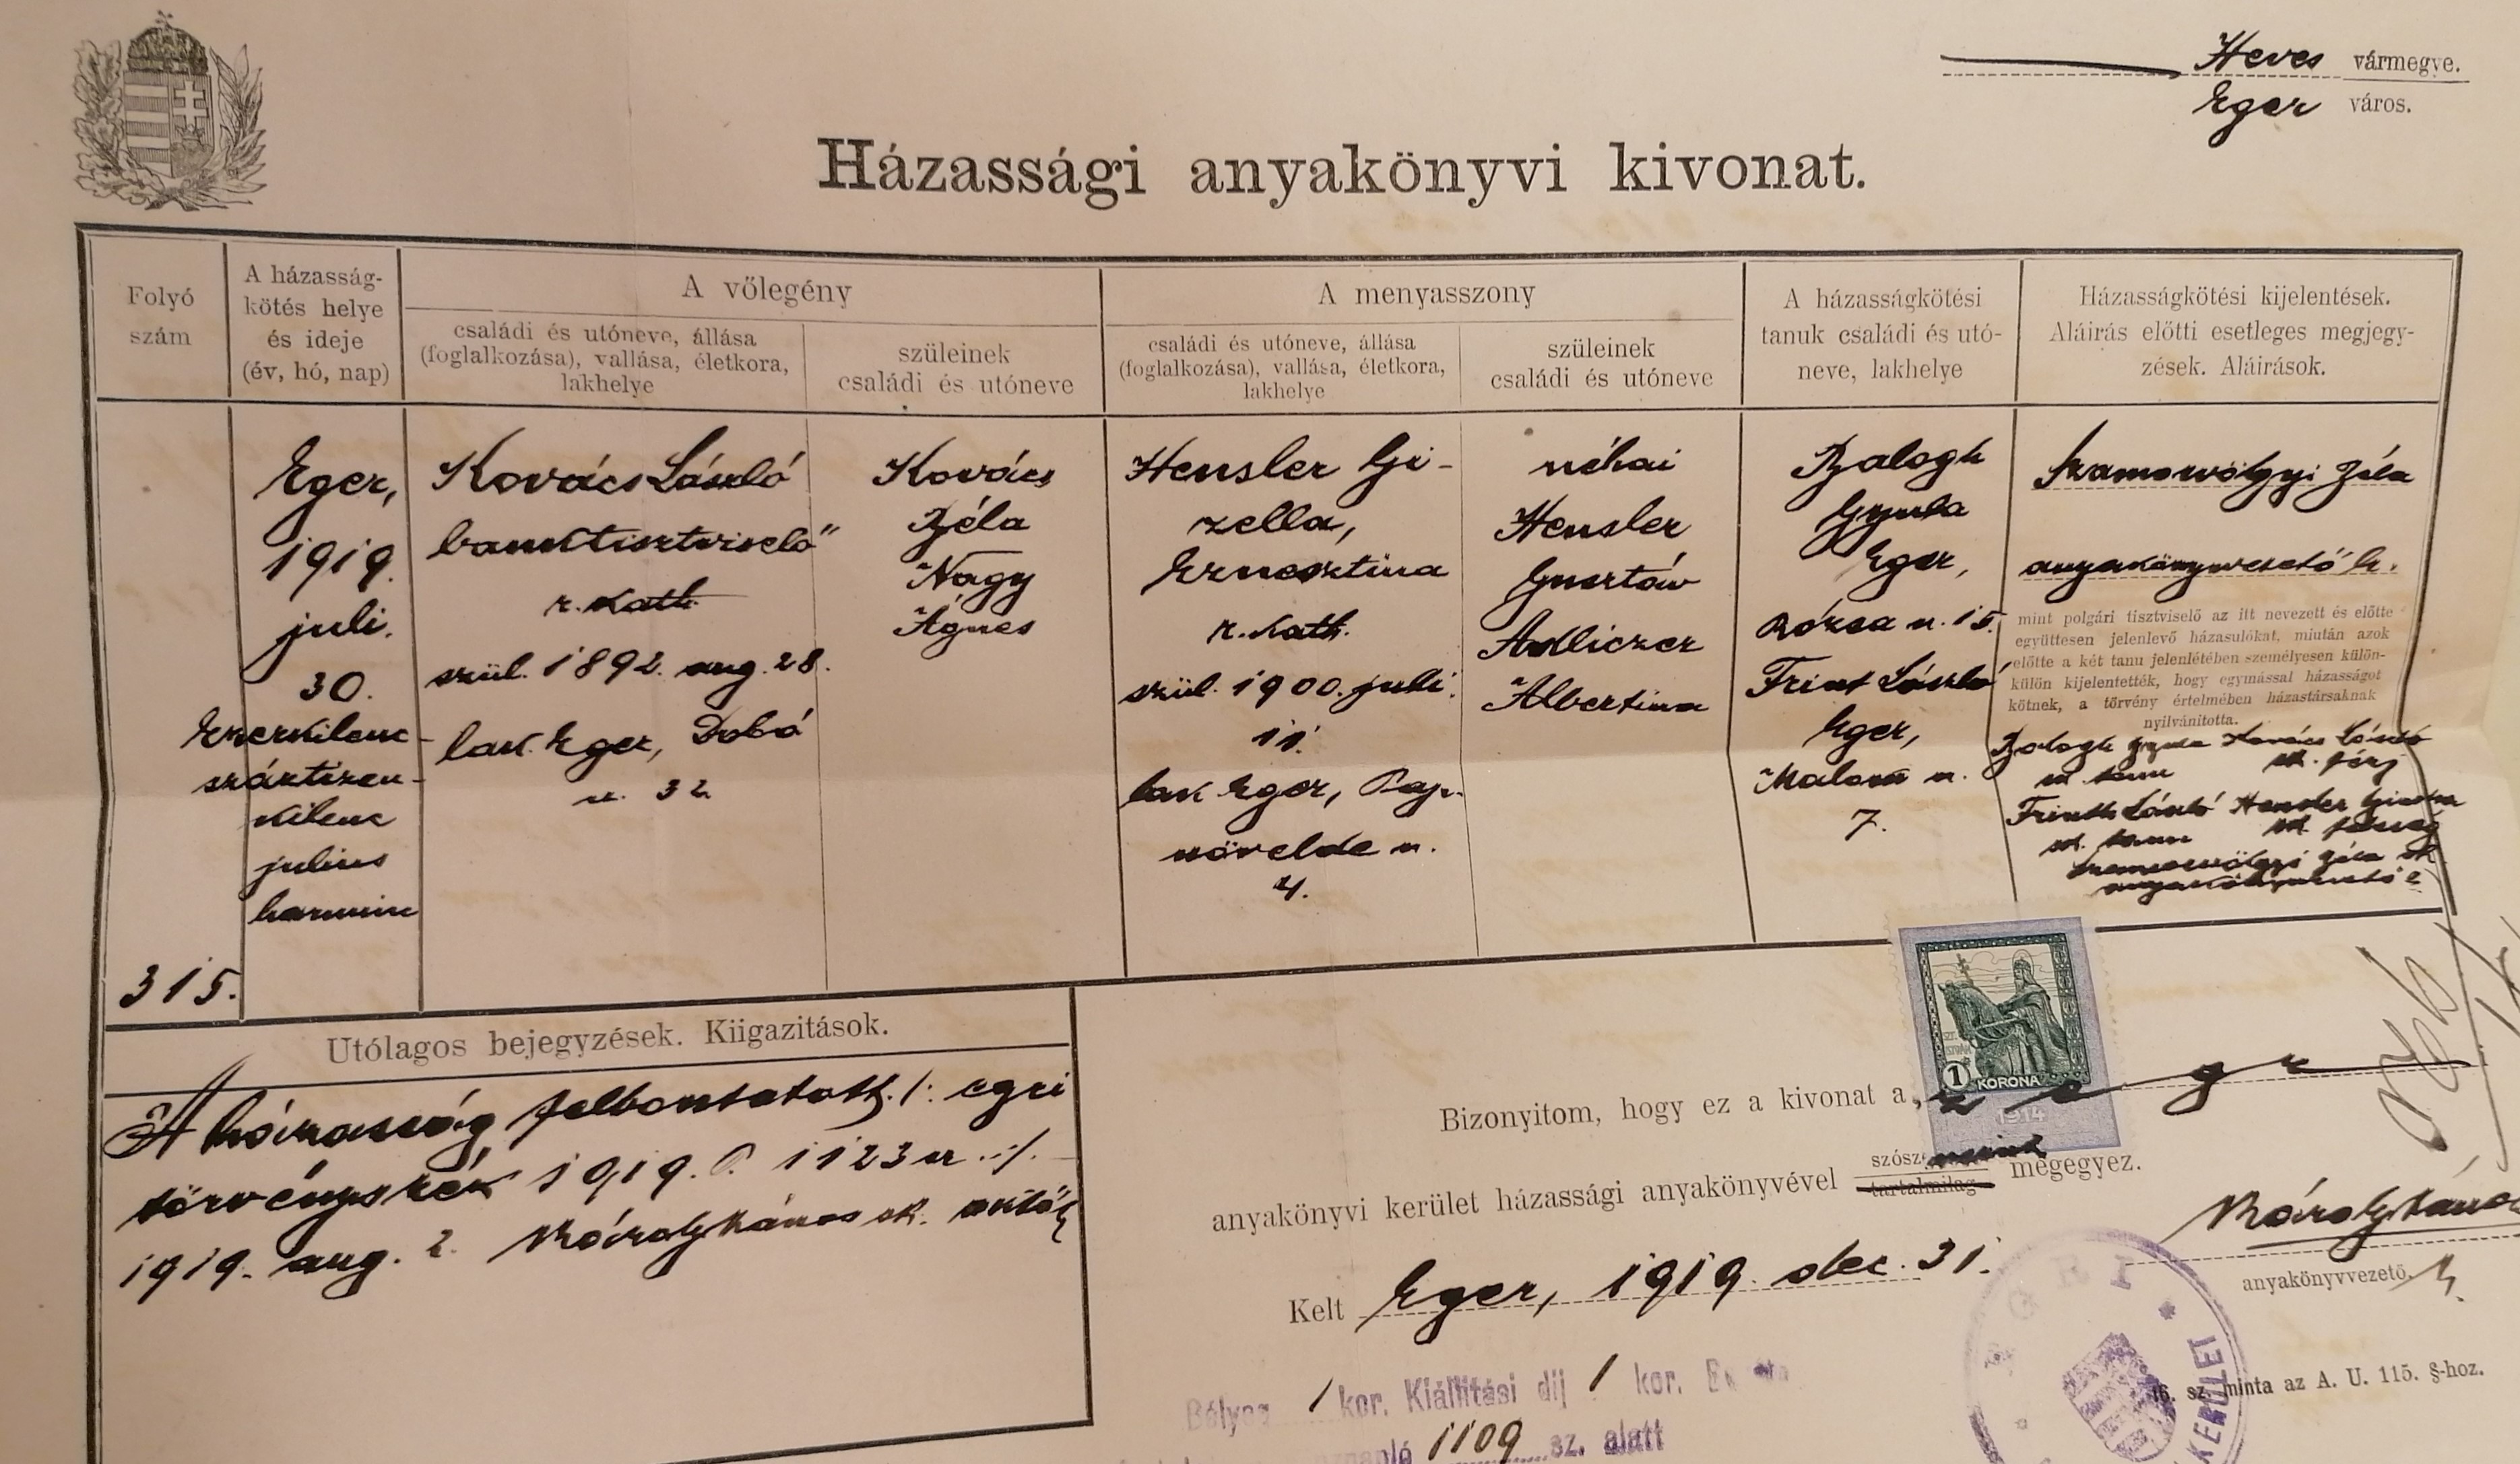 Heves vármegye.
Eger város.
Házassági anyakönyvi kivonat.
Folyó
szám
A házasság-
kötés helye
és ideje
(év, hó, nap)
A vőlegény
családi és utóneve, állása
(foglalkozása), vallása, életkora,
lakhelye
szüleinek
családi és utóneve
A menyasszony
családi és utóneve, állása
(foglalkozása), vallása, életkora,
lakhelye
szüleinek
családi és utóneve
A házasságkötési
tanuk családi és utó-
neve, lakhelye
Házasságkötési kijelentések.
Aláirás előtti esetleges megjegy-
zések. Aláirások.
315.
Eger,
1919.
juli.
30.
Ezerkilenc-
száztizen-
kilenc
julius
harminc
Kovács László
banktisztviselő
r. kath.
szül. 1892. aug. 28.
lak. Eger, Dobó
u. 32
Kovács
Béla
Nagy
Ágnes
Hensler Gi-
zella,
Ernesztina
r. kath.
szül. 1900. juli.
11.
lak Eger, Pap-
növelde u.
4.
néhai
Hensler
Gusztáv
Adliczer
Albertina
Balogh
Gyula
Eger,
Rózsa u. 15.
Frint László
Eger,
Malom u.
7.
Szamosvölgyi Béla
anyakönyvvezető h.
mint polgári tisztviselő az itt nevezett és előtte
együttesen jelenlevő házasulókat, miután azok
előtte a két tanu jelenlétében személyesen külön-
külön kijelentették, hogy egymással házasságot
kötnek, a törvény értelmében házastársaknak
nyilvánitotta.
Balogh Gyula Kovács László
sk. tanu sk. férj
Frinth László Hensler Gizella
sk. tanu sk. feleség
Szamosvölgyi Béla sk
anyakönyvvezető h
Utólagos bejegyzések. Kiigazitások.
A házasság felbontatott /: egri
törvényszék 1919. P. 1123 sz :/.
1919. aug. 2. Károly János sk.
SZT. ISTVÁN
1 KORONA
1914
Bizonyitom, hogy ez a kivonat a, z egr
anyakönyvi kerület házassági anyakönyvével szósz megegyez.
tartalmilag
Kelt Eger, 1919. dec. 31.
Károly János
anyakönyvvezető. h.
EGRI
KERÜLET
Bélyeg 1 kor. Kiállitási dij 1 kor.
1109 sz. alatt
16. sz. minta az A. U. 115. §-hoz.